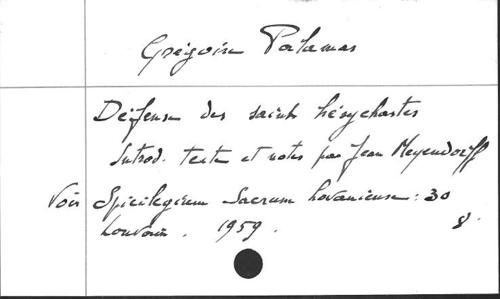 Grégoire Palamas
Défense des saints hésychastes
Introd. texte et notes par Jean Meyendorff
Voir Spicilegium Sacrum Lovaniense : 30
Louvain . 1959 . 8.